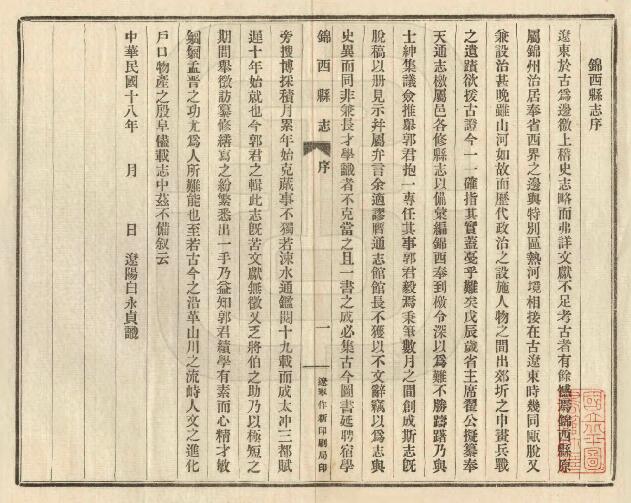 錦西縣志序
遼東於古爲邊徼上稽史志略而弗詳文獻不足考古者有餘憾焉錦西縣原
屬錦州治居奉省西界之邊與特別區熱河境相接在古遼東時幾同甌脫又
兼設治甚晚雖山河如故而歷代政治之設施人物之間出郊圻之申畫兵戰
之遺蹟欲援古證今一一確指其實蓋戞乎難矣戊辰歲省主席翟公擬纂奉
天通志檄屬邑各修縣志以備彙編錦西奉到檄令深以爲難不勝躊躇乃與
士紳集議僉推舉郭君抱一專任其事郭君毅焉秉筆數月之間創成斯志旣
脫稿以册見示幷屬弁言余適謬膺通志館館長不獲以不文辭竊以爲志與
史異而同非兼長才學識者不克當之且一書之成必集古今圖書延聘宿學
錦西縣志
序
一
遼東作新印刷局印
旁搜博採積月累年始克蕆事不獨若涑水通鑑閱十九載而成太冲三都賦
遲十年始就也今郭君之輯此志旣苦文獻無徵又乏將伯之助乃以極短之
期間舉徵訪纂修繕寫之紛繁悉出一手乃益知郭君績學有素而心精才敏
綱緬孟晉之功尤爲人所難能也至若古今之沿革山川之流峙人文之進化
戶口物產之殷阜儘載志中茲不備叙云
中華民國十八年 月 日 遼陽白永貞識